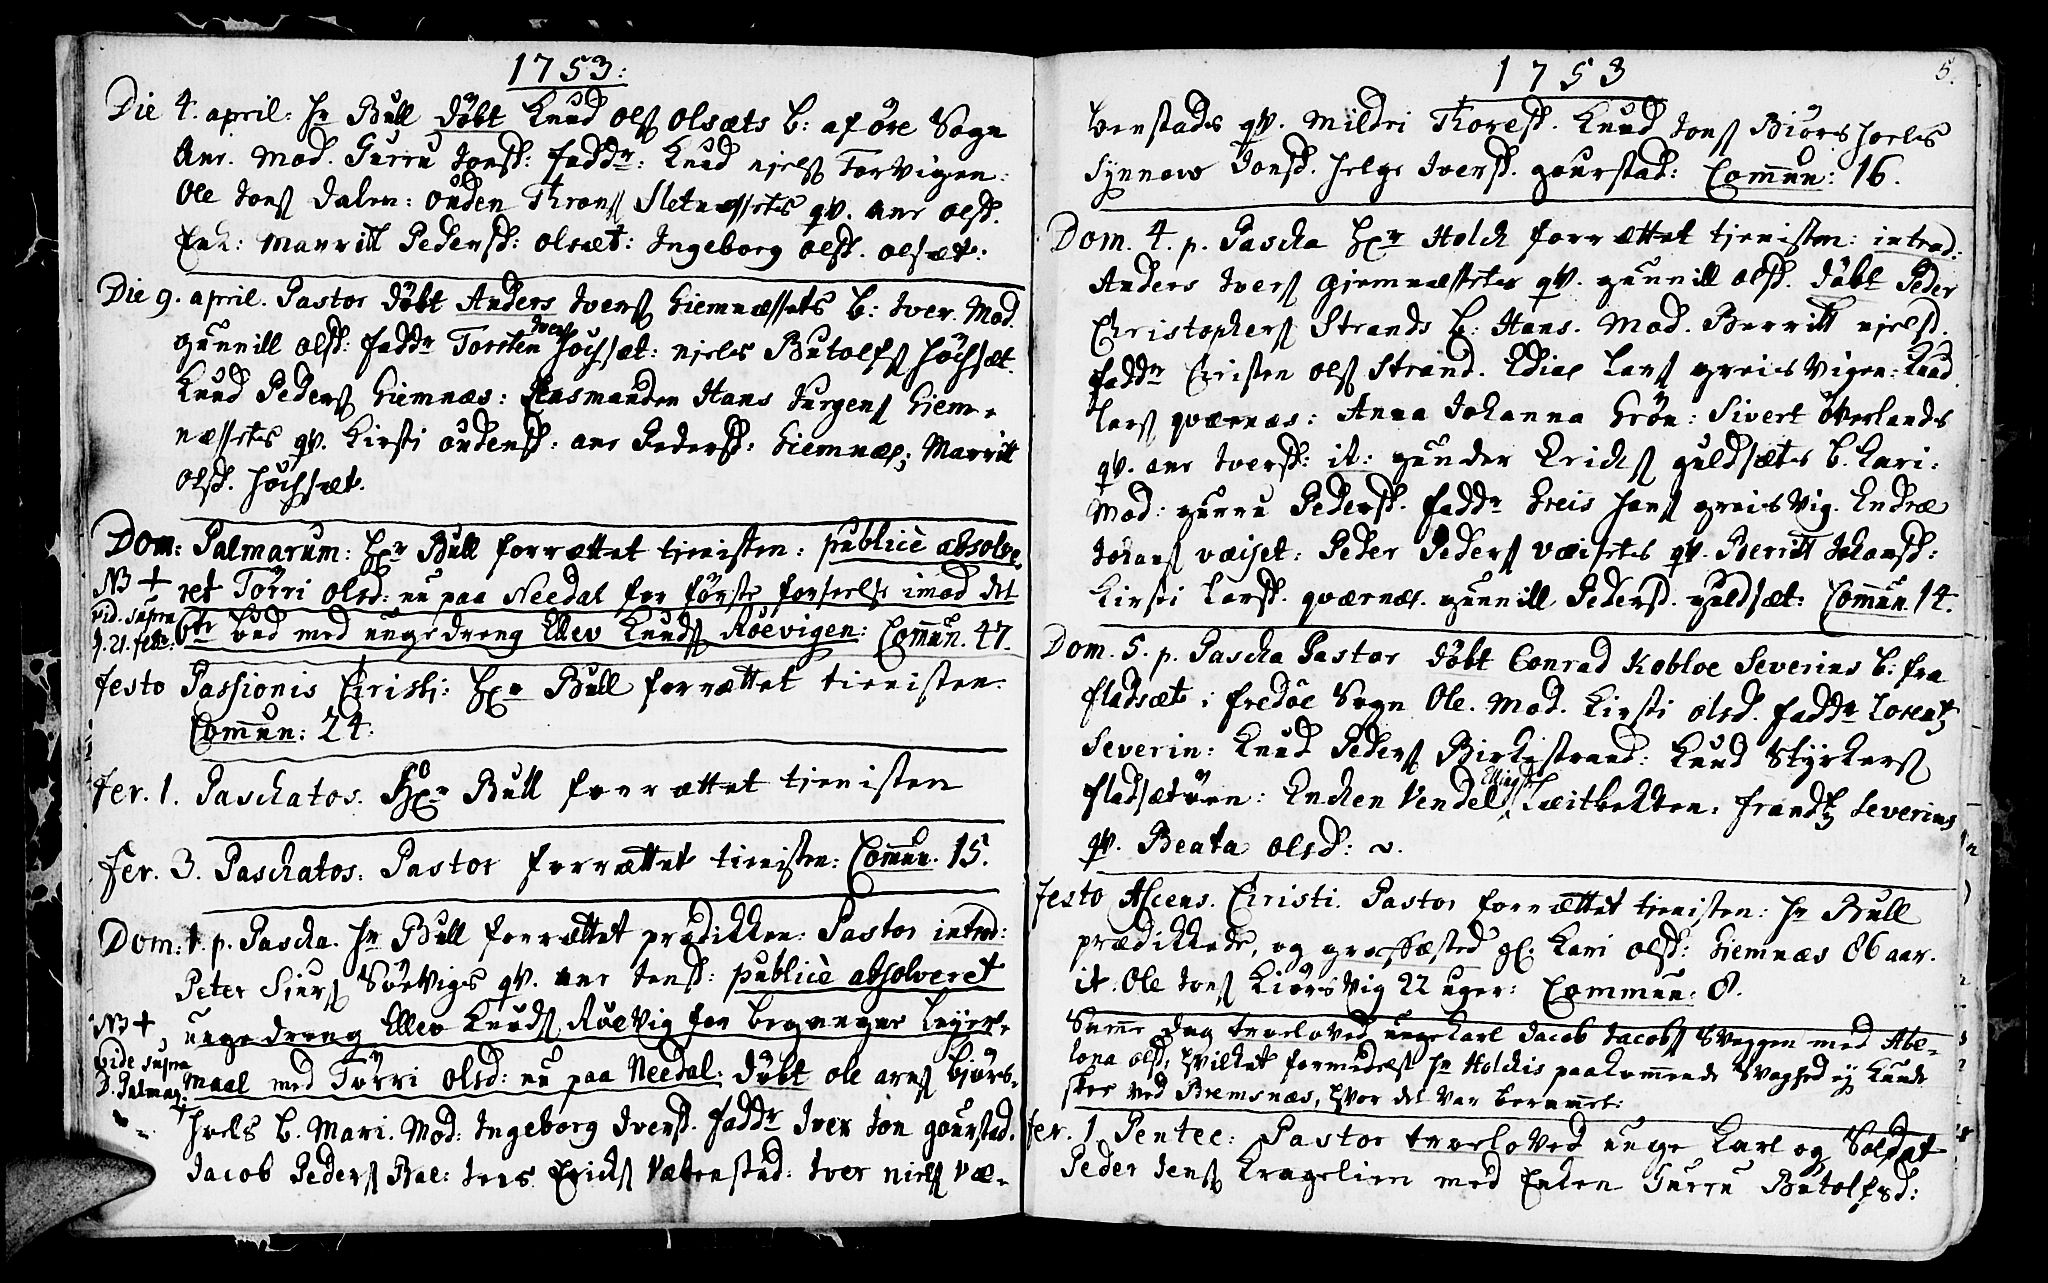 1753:
Die 4. april: Hr Bull döbt Knud Ols Olsæts B: af öre Sogn
Ane. Mod. Gurru Jonsd: faddr: Knud niels Torvigen:
Ole Jons Dalen: Ouden Throns Sletnessets qv. Ane Olsd.
Enk: Marritt Pedersd: Olsæt: Ingeborg Olsd. Olsæt:
Die 9. april. Pastor döbt Anders Ivers Giemnæssets B: Iver. Mod.
gunnill Olsd: faddr Torsten Ivers Höghsæt: niels Butolfs Höghsæt.
Knud Peders Giemnæs: Husmanden Hans Jurgens Giem-
næssets qv. Kirsti Oudensd: ane Pedersd: Giemnæs; Marritt
Olsd. Höghsæt.
Dom: Palmarum: Hr Bull forrættet tienisten: publicè absolve-
NB + ret Törri Olsd: nu paa Needal for förste forseelse imod det
vid. supra
d. 21. febr: 6te bud med unge dreng Ellev Knuds Röevigen: Comun. 47.
festo Passionis Christi: Hr Bull forrættet tienisten.
Comun: 24.
fer. 1. Paschatos. Hr Bull forrættet tienisten
fer. 3. Paschatos. Pastor forrættet tienisten: Comun. 15.
Dom: 1. p. Pascha. Hr Bull forrættet prædikken: Pastor introd:
Peter Siurs Sörvigs qv. ane Jensd: publicè absolveret
NB + unge dreng Ellev Knuds Röevig for begangne Leyer-
vide supra
D. Palmar: maal med Törri Olsd: nu paa Needal: Döbt ole arns Biörs-
hoels B. Mari. Mod: Ingeborg Iversd. faddr Iver Jon gourstad.
Jacob Peders Bae: Jens Erichs Væbenstad: Iver niels Væ-
1753 5.
benstads qv. Mildri Thoresd. Knud Jons Biörshoels
Synnow Jonsd. Helge Iversd. gourstad: Comun: 16.
Dom. 4. p. Pascha Hr Holck forrættet tienisten: introd:
Anders Ivers Giemnæssets qv. gunnill Olsd. Döbt Peder
Christophers Strands B: Hans. Mod. Berritt nielsd.
faddr Christen Ols Strand. Edias Lars greisvigen: Knud
Lars qværnæs: Anna Johanna Grön: Sivert överlands
qv. ane Iversd: it: gunder Erichs guldsæts B. Kari:
Mod: gurru Pedersd. faddr Greis Hans greisvig. Endræ
Johans væiset: Peder Peders væisets qv. Berritt Johansd:
Kirsti Larsd. qværnæs. gunnill Pedersd. guldsæt: Comun 14.
Dom. 5. p. Pascha Pastor döbt Conrad Kobloe Severins B: fra
fladsæt i fredöe Sogn Ole. Mod. Kirsti Olsd. faddr Lorentz
Severin: Knud Peders Birkestrand: Knud Styrkers
fladsætöen: Encken Vendel Ellingsd Leitbekken: frandtz Severins
qv. Beata Olsd:
festo Ascens. Christi. Pastor forrættet tienisten: Hr Bull
prædikkede, og græsfæsted gl: Kari Olsd: Giemnæs 86 aar.
it. Ole Jons Kiörsvig 22 uger: Commun: 8.
Samme Dag troeloved unge Karl Jacob Jacobs Svaggen med Abe-
lona Olsd: hvilket formedelst Hr Holckis paakommende Svaghed ey kunde
skee ved Bremsnæs, hvor det var berammet:
fer. 1 Pentec: Pastor troeloved unge Karl og Soldat
Peder Jens Kragelien med Enken Gurru Butolfsd: